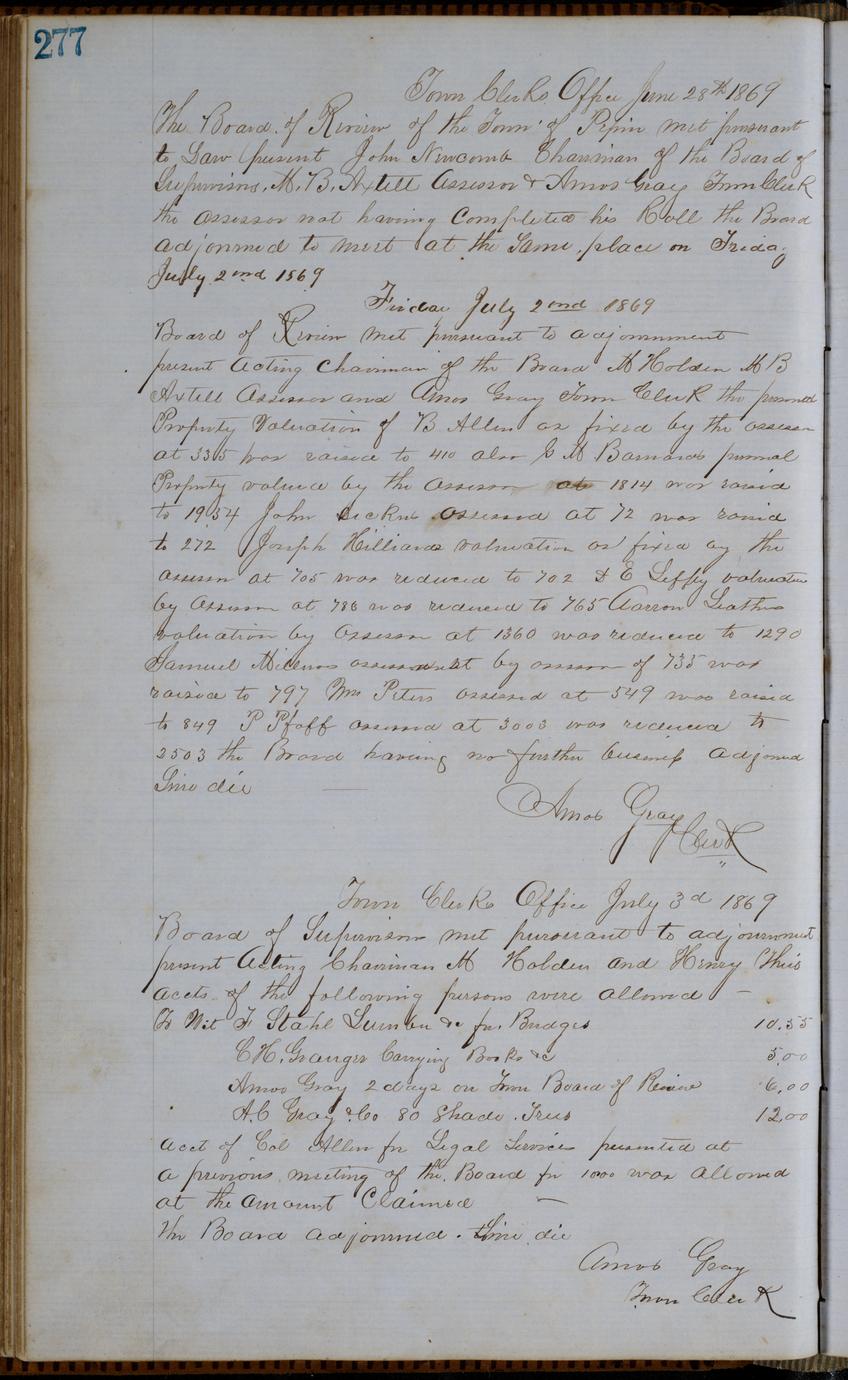 277
Town Clerks Office June 28th 1869
The Board of Review of the Town of Pepin met pursuant
to Law present John Newcomb Chairman of the Board of
Supervisors. M. B. Axtell Assessor & Amos Gray Town Clerk
the assessor not having Completed his Roll the Board
adjourned to meet at the Same place on Friday
July 2nd 1869
Friday July 2nd 1869
Board of Review met pursuant to adjournment
present Acting Chairman of the Board M Holden M B
Axtell Assessor and Amos Gray Town Clerk the personal
Property Valuation of B Allen as fixed by the assessor
at 335 was raised to 410 also G M Barnards personal
Property valued by the Assessor at 1814 was raised
to 1934 John assessed at 72 was raised
to 272 Joseph Hilliards valuation as fixed by the
assessor at 705 was reduced to 702 D E Leffy valuation
by Assessor at 788 was reduced to 765 Aarron Leathes
valuation by Assessor at 1360 was reduced to 1290
Samuel assessment by assessor of 735 was
raised to 797 Wm Peters assessed at 549 was raised
to 849 P Pfaff assessed at 3003 was reduced to
2503 the Board having no further business adjourned
Sine die
Amos Gray
Clerk
Town Clerks Office July 3d 1869
Board of Supervisors met pursuant to adjournment
present Acting Chairman M Holden and Henry
accts of the following persons were allowed —
To Wit F Stahl Lumber &c for Bridges 10.55
C H. Granger Carrying Books &c 5.00
Amos Gray 2 days on Town Board of Review 6.00
A. C Gray & Co 80 Shade Trees 12.00
acct of Col Allen for Legal Services presented at
a previous meeting of the Board for 1000 was allowed
at the amount Claimed —
the Board adjourned. Sine die
Amos Gray
Town Clerk